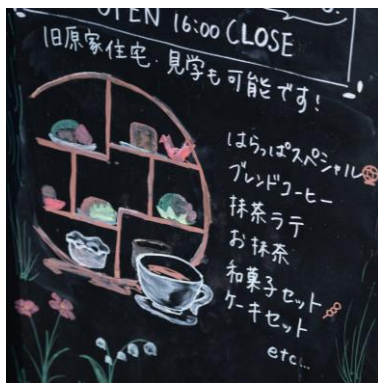 OPEN 16:00 CLOSE
旧原家住宅・見学も可能です!
はらっぱスペシャル
ブレンドコーヒー
抹茶ラテ
お抹茶
和菓子セット
ケーキセット
etc...